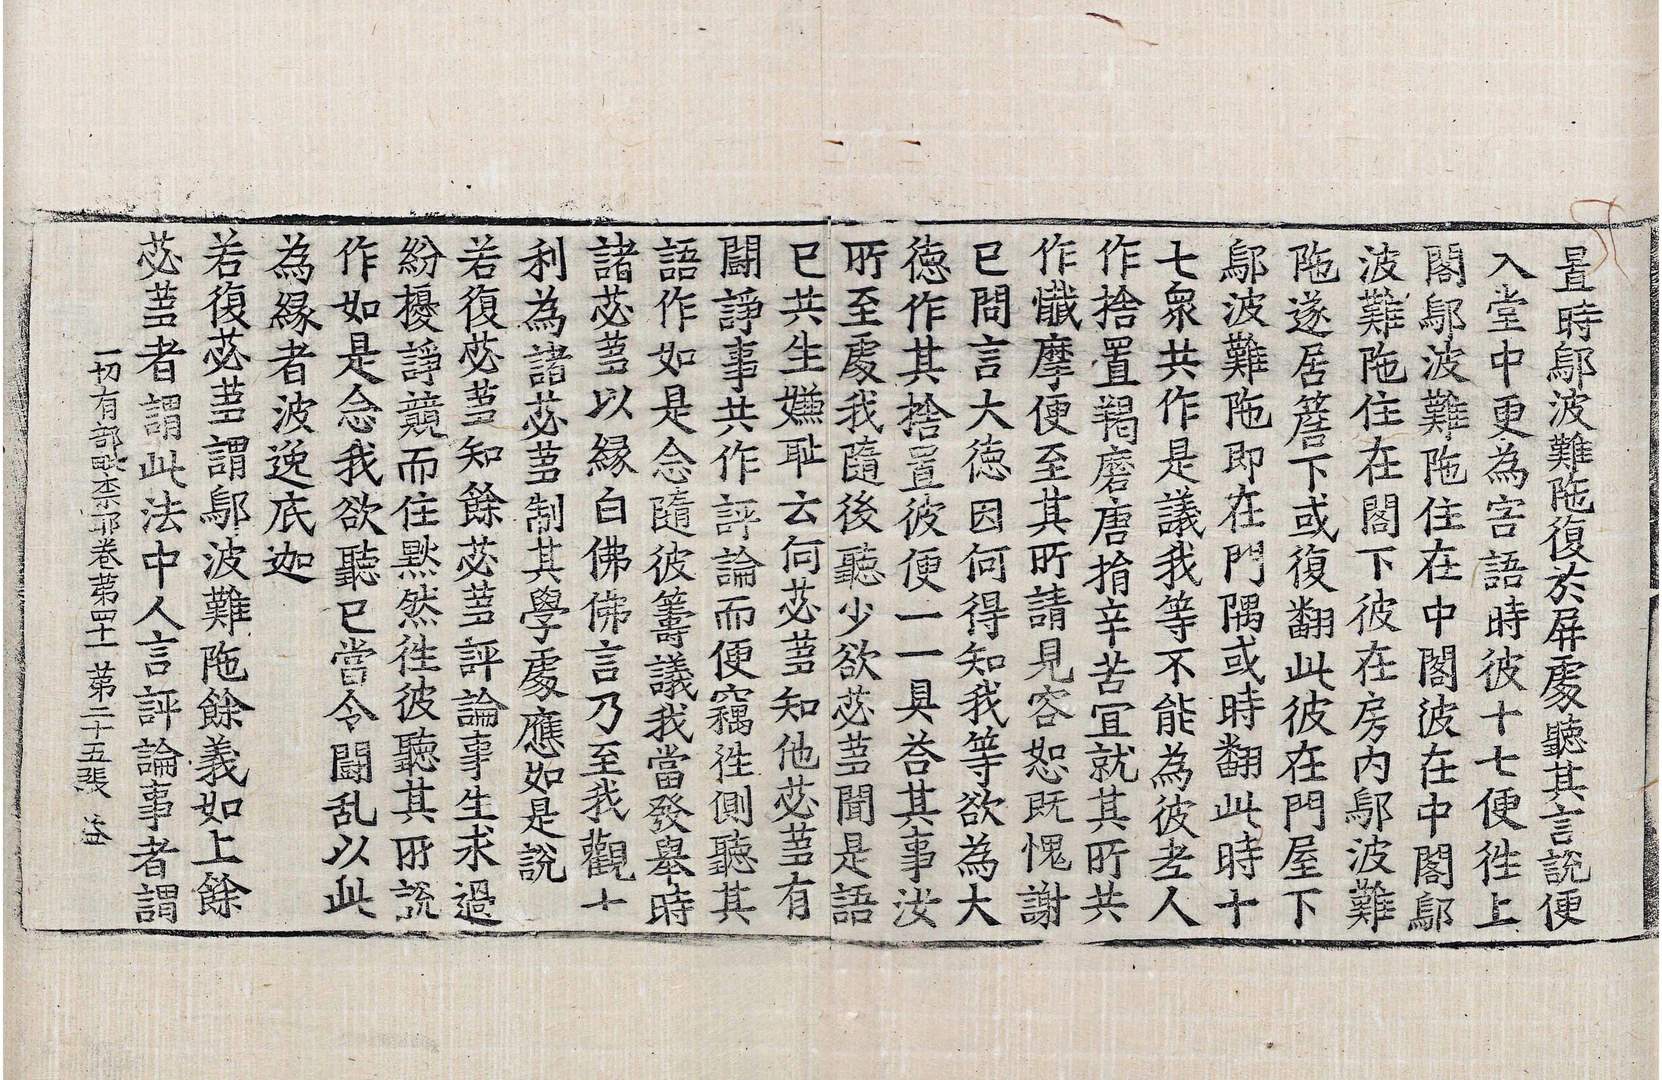 置時鄔波難陁復於屏處聽其言說便
入堂中更為密語時彼十七便徃上
閣鄔波難陁住在中閣波在中閣鄔
波難陁住在閣下彼在房内鄔波難
陁遂居簷下或復翻此彼在門屋下
鄔波難陁即在門隅或時翻此時十
七衆共作是議我等不能為彼老人
作捨置羯磨唐捐辛苦冝就其所共
作懺摩便至其所請見容恕既愧謝
已問言大德因何得知我等欲為大
德作其捨置彼便一一具荅其事汝
所至處我隨後聽少欲苾蒭聞是語
已共生嫌耻云何苾蒭知他苾蒭有
鬪諍事共作評論而便竊徃側聽其
語作如是念隨彼籌議我當發舉時
諸苾蒭以緣白佛佛言乃至我觀十
利為諸苾蒭制其學處應如是說
若復苾蒭知餘苾蒭評論事生求過
紛擾諍競而住默然徃彼聽其所說
作如是念我欲聽已當令鬪乱以此
為緣者波逸底迦
若復苾蒭謂鄔波難陁餘義如上餘
苾蒭者謂此法中人言評論事者謂
一切有部毗柰耶卷苐四十一 苐二十五張